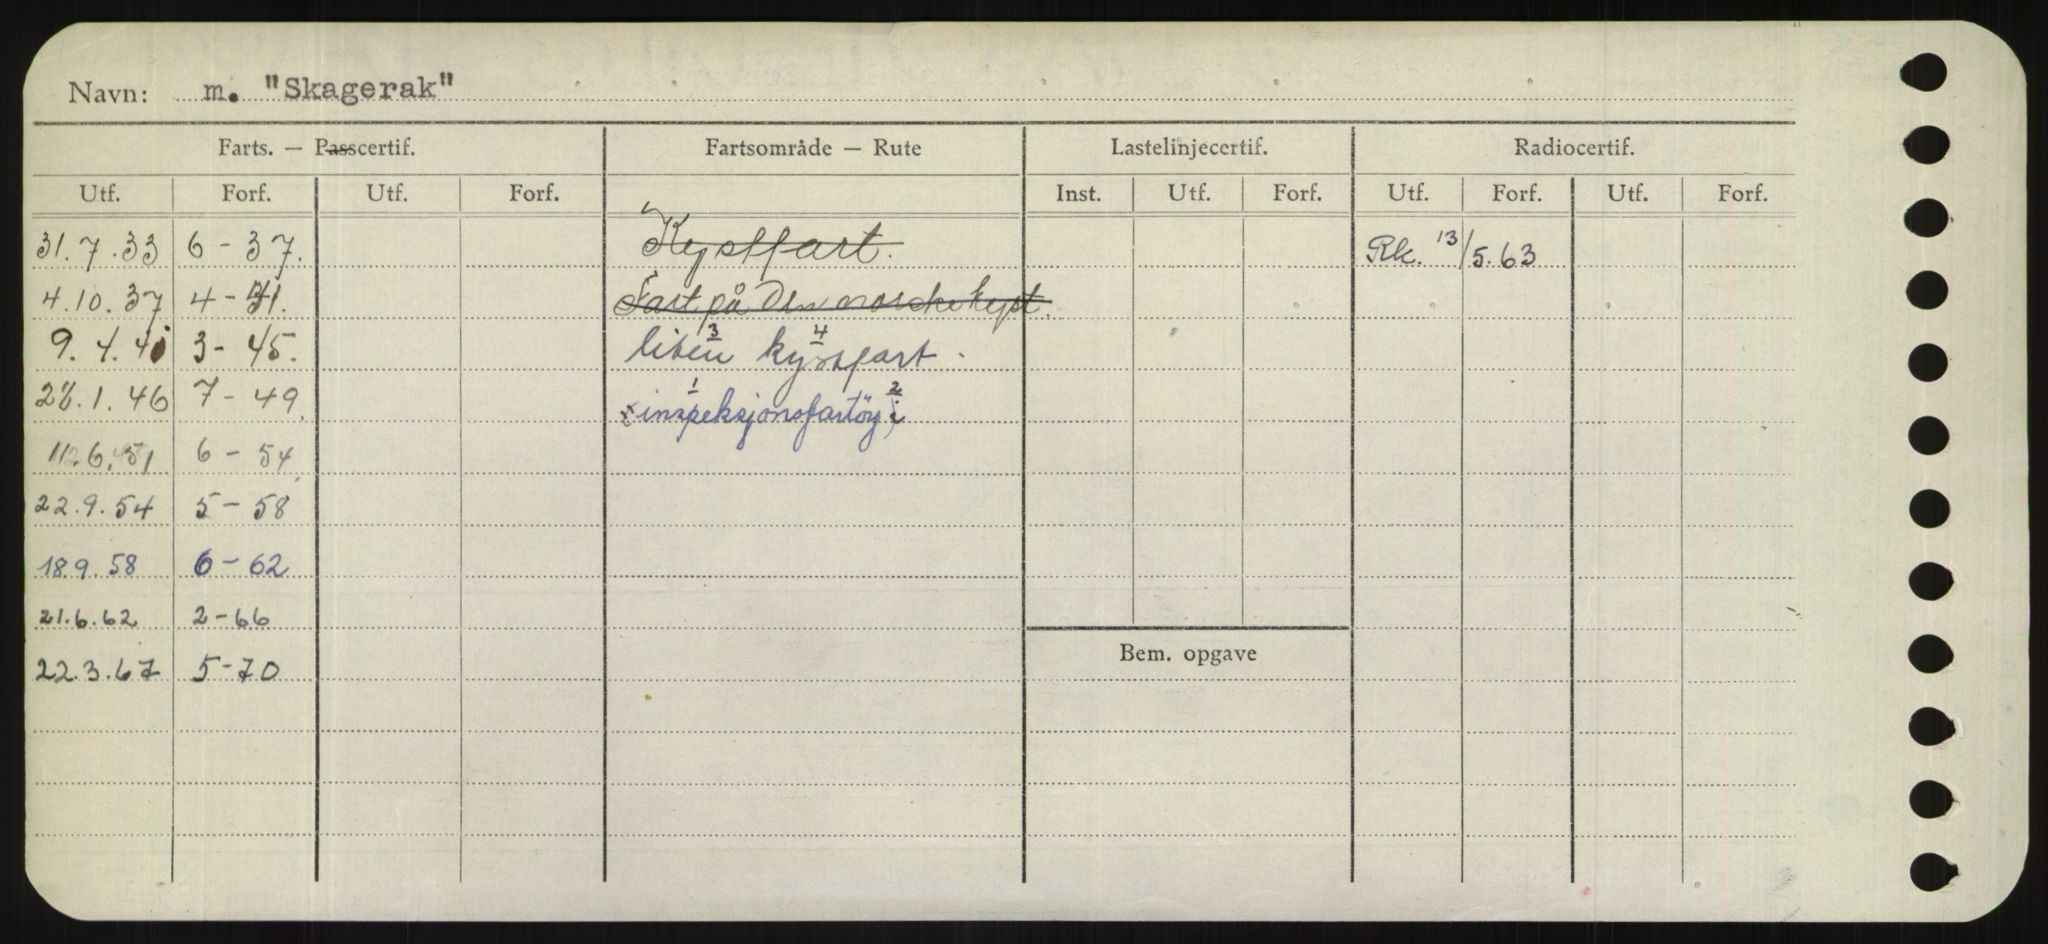 Navn: m. "Skagerak"
Farts. — Passcertif. Fartsområde — Rute Lastelinjecertif. Radiocertif.
Utf. Forf. Utf. Forf. Inst. Utf. Forf. Utf. Forf. Utf. Forf.
31.7.33 6 - 37. Kystfart. Rk. 13/5.63
4.10.37 4 - 41. Fart på den norske kyst.
9.4.41 3 - 45. liten 3 kystfart 4.
1.46 7 - 49. inspeksjonsfartöy 1 i 2
6.51 6 - 54
22.9.54 5 - 58
18.9.58 6 - 62
21.6.62 2 - 66
22.3.67 5 - 70
Bem. opgave